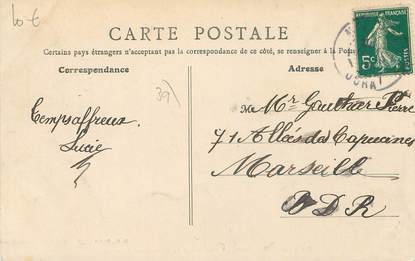 10 €
CARTE POSTALE
Certains pays étrangers n'acceptant pas la correspondance de ce côté, se renseigner à la Poste
RÉPUBLIQUE FRANÇAISE
5c
POSTES
JURA
Correspondance
Adresse
39)
Temps affreux.
Lucie
M Mr Gauthier Pierre
71 Allées des Capucines
Marseille
B D R